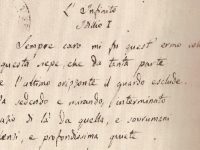 L'Infinito
Idilio I
Sempre caro mi fu quest'ermo
questa sepe, che da tanta parte
l'ultimo orizzonte il guardo esclude.
sedendo e mirando, interminato
di là da quella, e sovrumani
e profondissima quiete